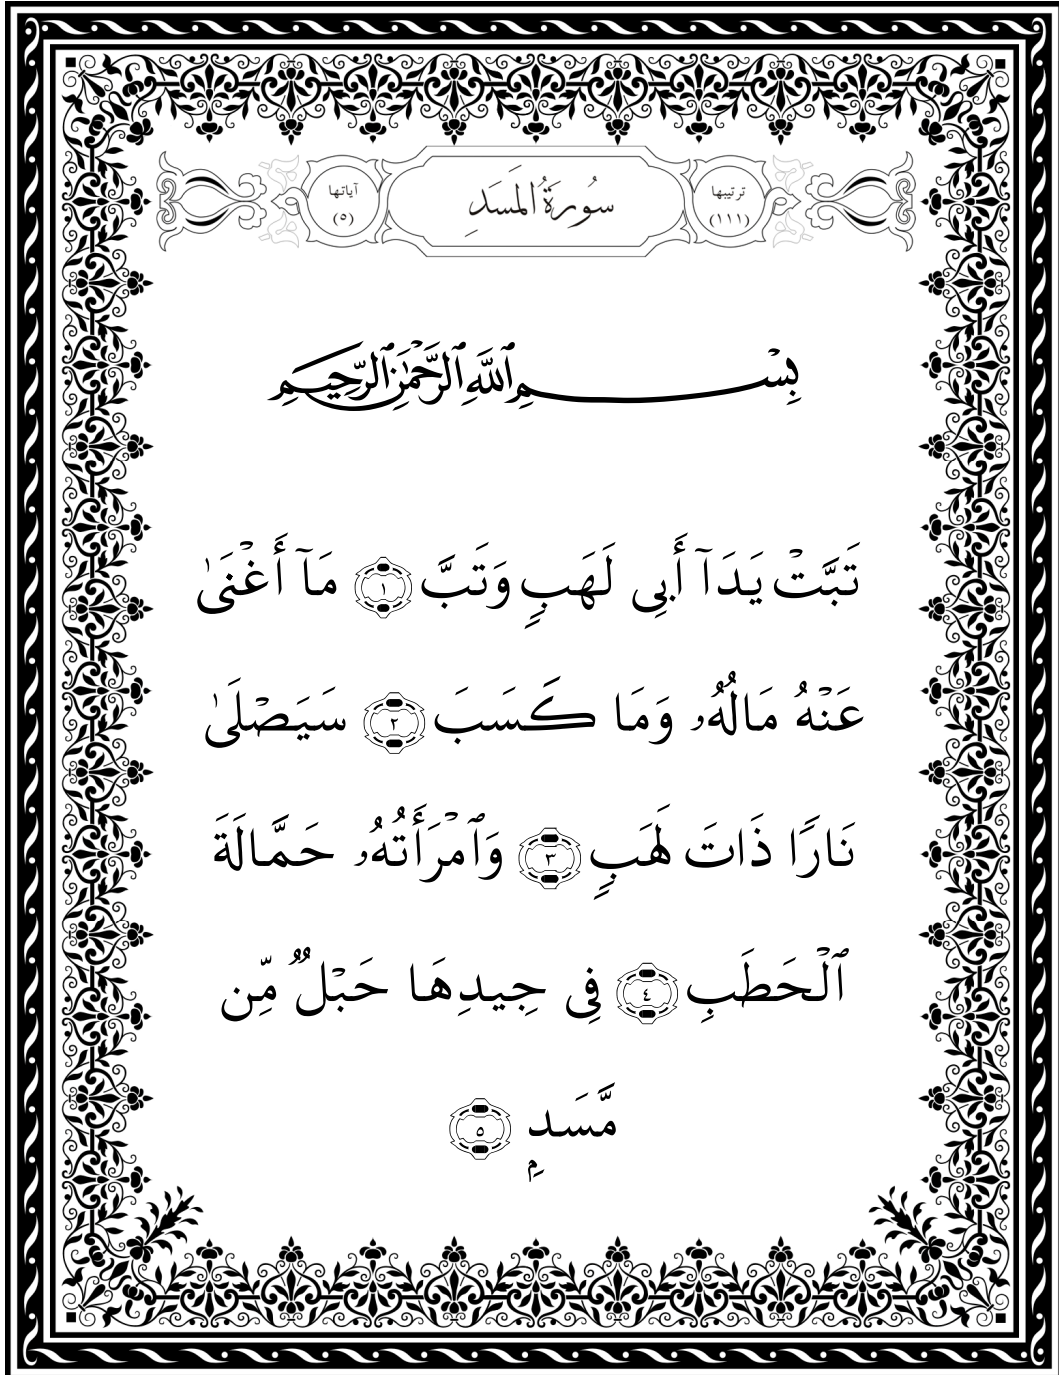 ترتيبها
(١١١)
سُورَةُ المَسَدِ
آياتها
(٥)
بِسْمِ ٱللَّهِ ٱلرَّحْمَٰنِ ٱلرَّحِيمِ
تَبَّتْ يَدَآ أَبِى لَهَبٍ وَتَبَّ ١ مَآ أَغْنَىٰ
عَنْهُ مَالُهُۥ وَمَا كَسَبَ ٢ سَيَصْلَىٰ
نَارًا ذَاتَ لَهَبٍ ٣ وَٱمْرَأَتُهُۥ حَمَّالَةَ
ٱلْحَطَبِ ٤ فِى جِيدِهَا حَبْلٌ مِّن
مَّسَدٍۭ ٥